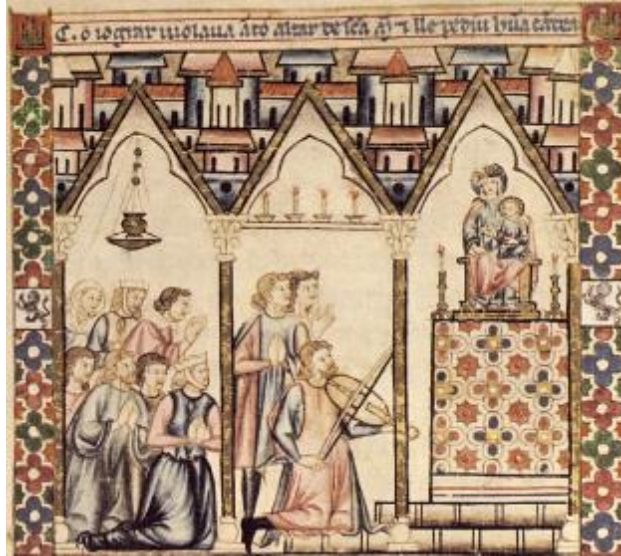 C. o iograr uiolaua ãto altar de sc̃a M̃ ⁊ lle pediu hũa cãdea